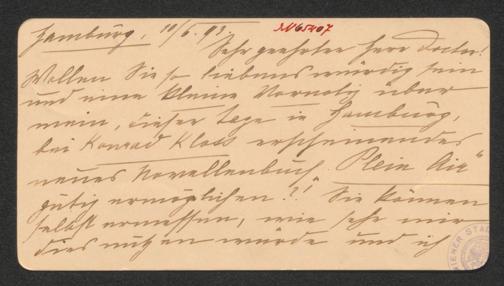 Hamburg, 10/5. 93. J.N 65407
Sehr geehrter Herr Doctor!
Wollen Sie so liebenswürdig sein
und eine kleine Vornotiz über
mein, dieser Tage in Hamburg,
bei Konrad Kloss erscheinendes
neues Novellenbuch „Plein Air“
gütig ermöglichen?! Sie können
selbst ermessen, wie sehr mir
dies nützen würde und ich
WIENER STAD